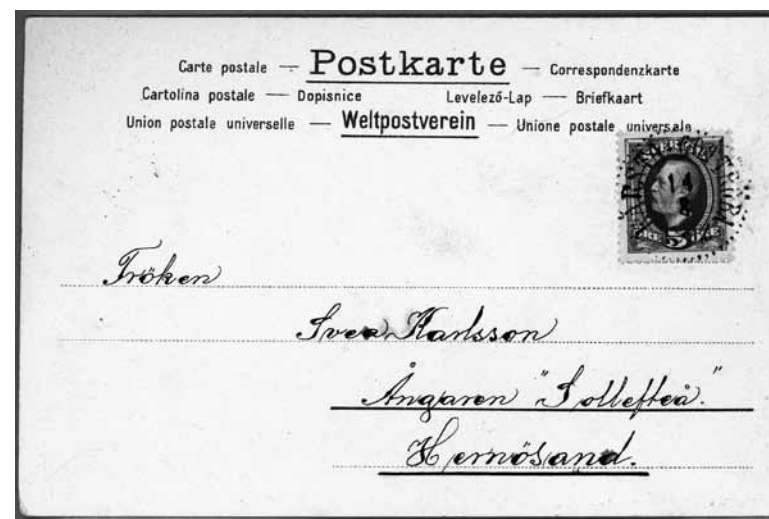 Carte postale — Postkarte — Correspondenzkarte
Cartolina postale — Dopisnice Levelező-Lap — Briefkaart
Union postale universelle — Weltpostverein — Unione postale universale
SVERIGE
14
5
Fröken
Svea Karlsson
Ångaren "Sollefteå."
Hernösand.